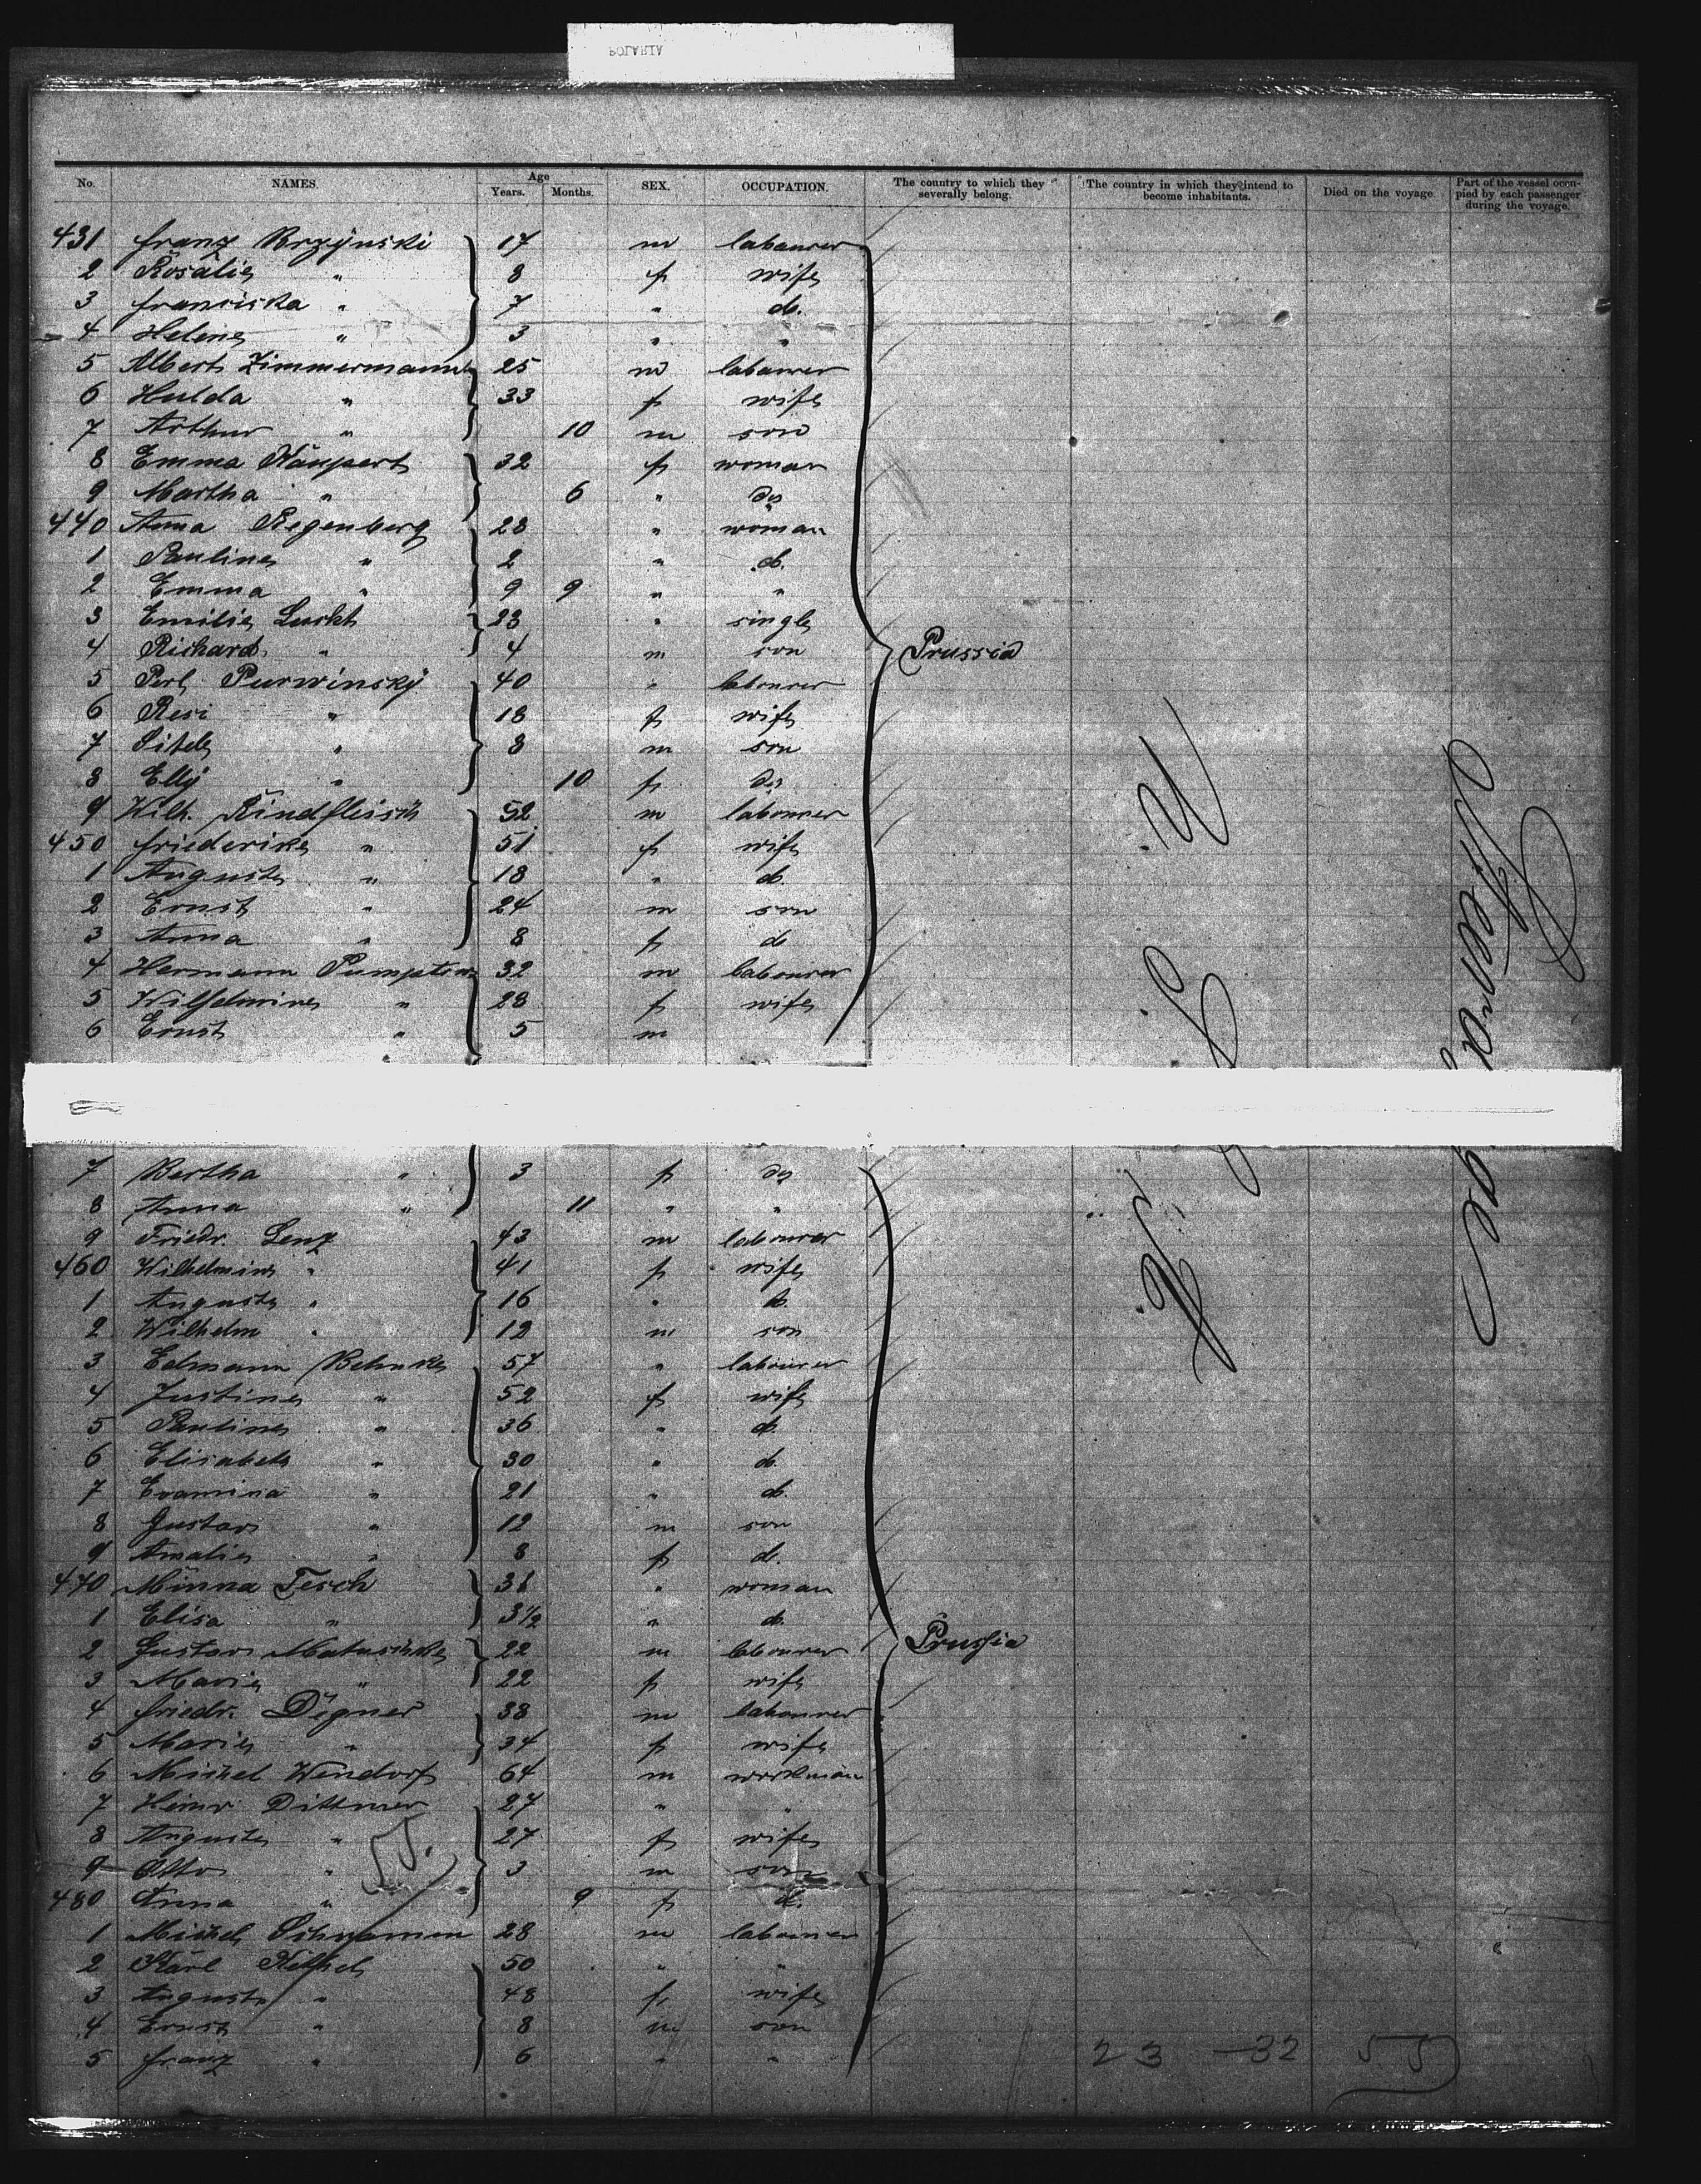 POLARIA
No. NAMES. Age Years. Months. SEX. OCCUPATION. The country to which they severally belong. The country in which they intend to become inhabitants. Died on the voyage. Part of the vessel occupied by each passenger during the voyage.
431 Franz Brzynski 17 m labourer
2 Rosalie " 8 f wife
3 Franciska " 7 " do.
4 Helene " 3 " "
5 Albert Zimmermann 25 m labourer
6 Hulda " 33 f wife
7 Arthur " 10 m son
8 Emma 32 f woman
9 Martha " 6 " do
440 Anna Regenberg 28 " woman
1 Pauline " 2 " do.
2 Emma " 9 9 " "
3 Emilie Lucht 23 " single
4 Richard " 4 m son
Prussia
5 Perl Purwinsky 40 " labourer
6 Resi " 18 f wife
7 " 8 m son
8 Elly " 10 f do
9 Wilh. Rindfleisch 52 m labourer
450 Friederike " 51 f wife
1 Auguste " 18 " do.
2 Ernst " 24 m son
3 Anna " 8 f do
4 Hermann 32 m labourer
5 Wilhelmine " 28 f wife
6 Ernst " 5 m
7 Bertha " 3 f do
8 Anna " 11 " "
9 Friedr. Lenz 43 m labourer
460 Wilhelmine " 41 f wife
1 Auguste " 16 " do.
2 Wilhelm " 12 m son
3 Edmann Behnke 57 " labourer
4 Justine " 52 f wife
5 Pauline " 36 " do.
6 Elisabeth " 30 " do.
7 " 21 " do.
8 Gustav " 12 m son
9 Amalie " 8 f do.
470 Minna Tesch 31 " woman
1 Elisa " 3 1/2 " do.
2 Gustav 22 m labourer
Prussia
3 Marie " 22 f wife
4 Friedr. Degner 38 m labourer
5 Marie " 34 f wife
6 Michel Wendorf 64 m workman
7 Heinr. Dittmer 27 " "
8 Auguste " 27 f wife
9 Otto " 3 m son
480 Anna " 9 f do.
1 Michel Schramm 28 m labourer
2 Karl 50 " "
3 Auguste " 48 f wife
4 Ernst " 8 m son
5 Franz " 6 " "
U. S. A.
Steerage
23 - 32 55
55.